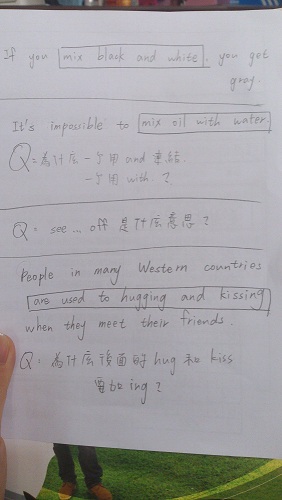 If you mix black and white, you get
gray.
It's impossible to mix oil with water.
Q: 為什庅一个用 and 連結.
一个用 with.?
Q: see... off 是什庅意思?
People in many Western countries
are used to hugging and kissing
when they meet their friends.
Q: 為什庅後面的 hug 和 kiss
要加 ing?